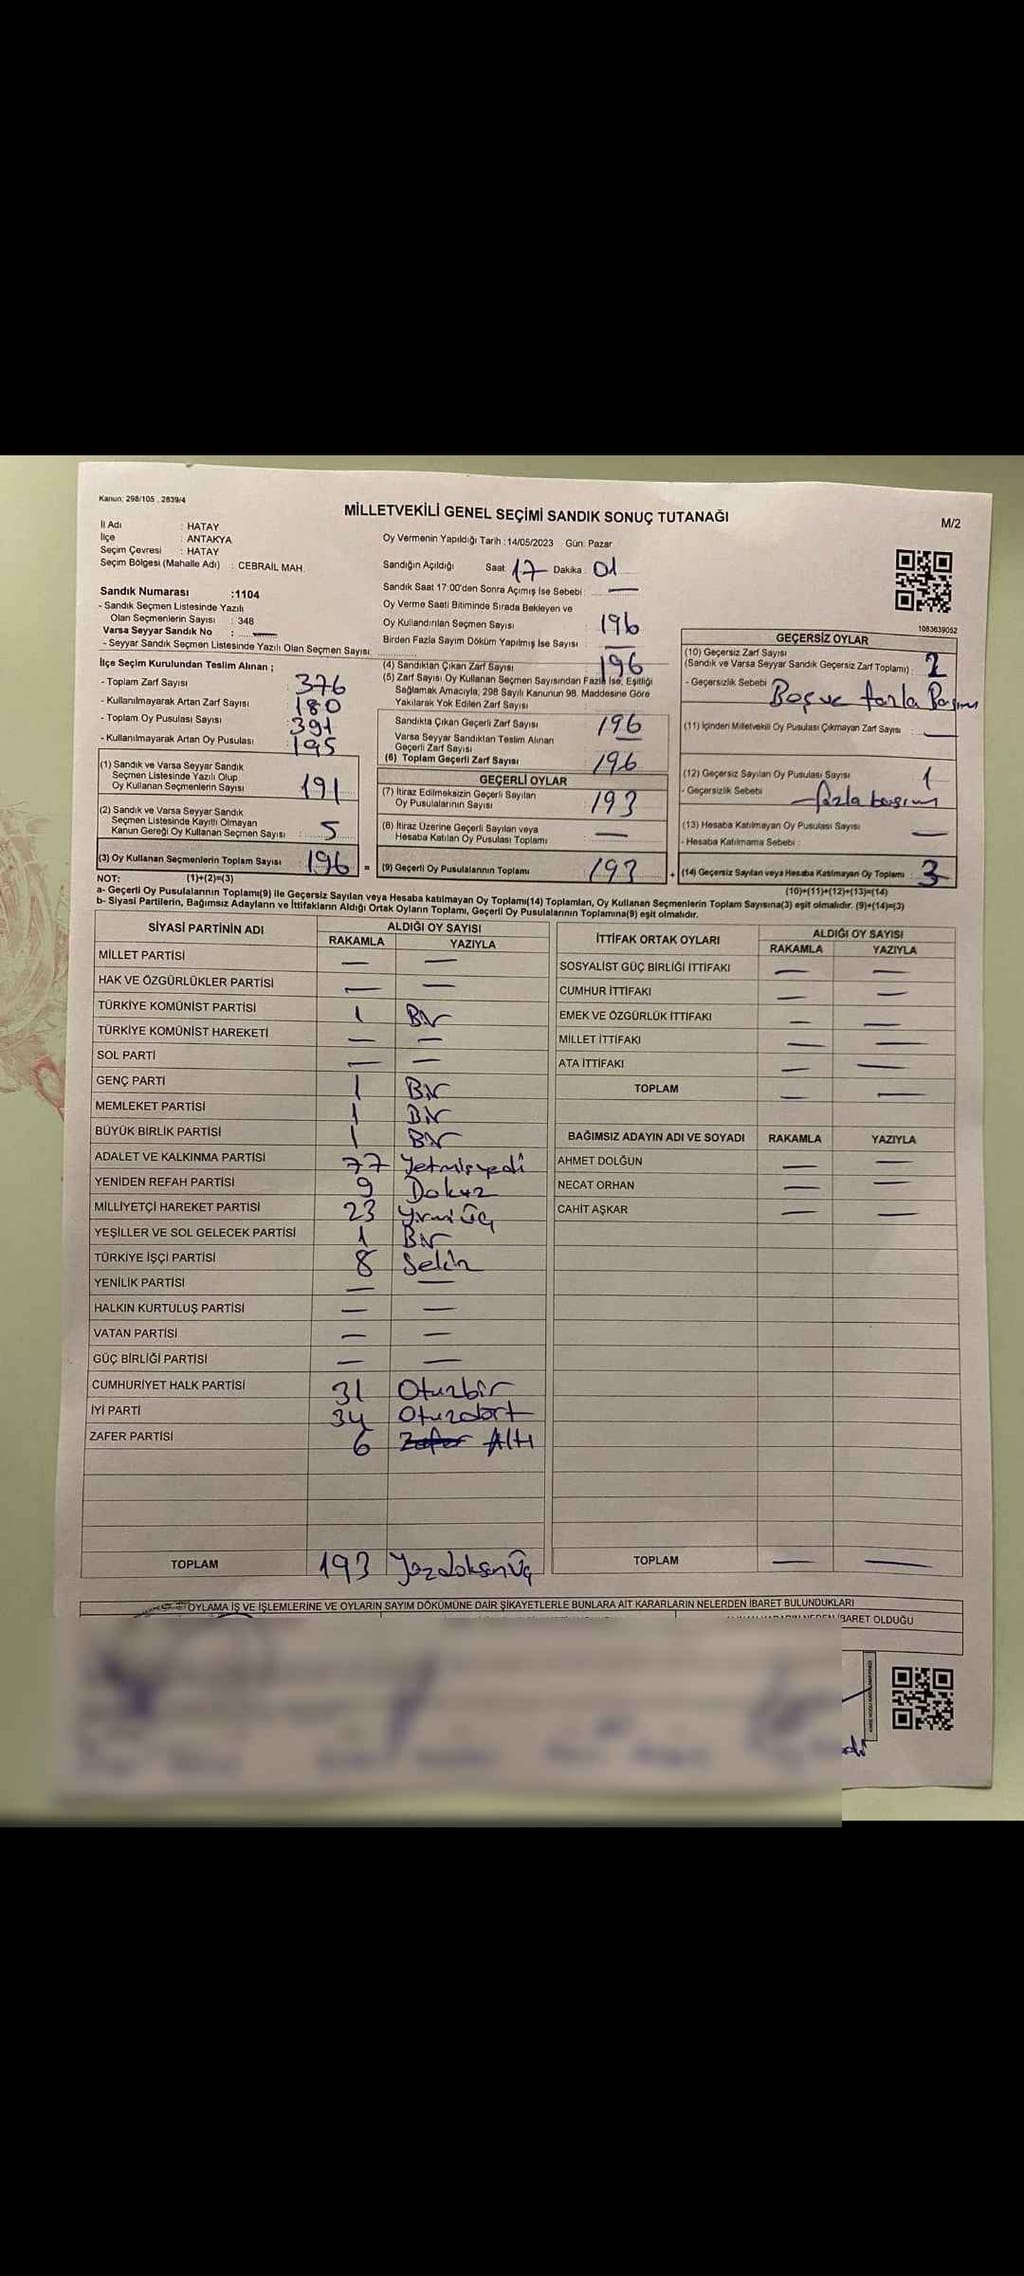 Kanun: 298/105 , 2839/4
MİLLETVEKİLİ GENEL SEÇİMİ SANDIK SONUÇ TUTANAĞI
M/2
İl Adı : HATAY
İlçe : ANTAKYA
Seçim Çevresi : HATAY
Seçim Bölgesi (Mahalle Adı) : CEBRAİL MAH.
Sandık Numarası :1104
- Sandık Seçmen Listesinde Yazılı
Olan Seçmenlerin Sayısı : 348
Varsa Seyyar Sandık No : —
- Seyyar Sandık Seçmen Listesinde Yazılı Olan Seçmen Sayısı:
Oy Vermenin Yapıldığı Tarih : 14/05/2023 Gün: Pazar
Sandığın Açıldığı Saat: 17 Dakika: 01
Sandık Saat 17:00'den Sonra Açımış İse Sebebi : —
Oy Verme Saati Bitiminde Sırada Bekleyen ve
Oy Kullandırılan Seçmen Sayısı : 196
Birden Fazla Sayım Döküm Yapılmış İse Sayısı : —
İlçe Seçim Kurulundan Teslim Alınan ;
- Toplam Zarf Sayısı : 376
- Kullanılmayarak Artan Zarf Sayısı : 180
- Toplam Oy Pusulası Sayısı : 391
- Kullanılmayarak Artan Oy Pusulası : 195
(1) Sandık ve Varsa Seyyar Sandık
Seçmen Listesinde Yazılı Olup
Oy Kullanan Seçmenlerin Sayısı : 191
(2) Sandık ve Varsa Seyyar Sandık
Seçmen Listesinde Kayıtlı Olmayan
Kanun Gereği Oy Kullanan Seçmen Sayısı : 5
(3) Oy Kullanan Seçmenlerin Toplam Sayısı : 196 =
(4) Sandıktan Çıkan Zarf Sayısı : 196
(5) Zarf Sayısı Oy Kullanan Seçmen Sayısından Fazla İse, Eşitliği
Sağlamak Amacıyla, 298 Sayılı Kanunun 98. Maddesine Göre
Yakılarak Yok Edilen Zarf Sayısı :
Sandıkta Çıkan Geçerli Zarf Sayısı : 196
Varsa Seyyar Sandıktan Teslim Alınan
Geçerli Zarf Sayısı : —
(6) Toplam Geçerli Zarf Sayısı : 196
GEÇERLİ OYLAR
(7) İtiraz Edilmeksizin Geçerli Sayılan
Oy Pusulalarının Sayısı : 193
(8) İtiraz Üzerine Geçerli Sayılan veya
Hesaba Katılan Oy Pusulası Toplamı : —
(9) Geçerli Oy Pusulalarının Toplamı : 193 +
1083639052
GEÇERSİZ OYLAR
(10) Geçersiz Zarf Sayısı
(Sandık ve Varsa Seyyar Sandık Geçersiz Zarf Toplamı) : 2
- Geçersizlik Sebebi : Boş ve fazla Basım
(11) İçinden Milletvekili Oy Pusulası Çıkmayan Zarf Sayısı : —
(12) Geçersiz Sayılan Oy Pusulası Sayısı : 1
- Geçersizlik Sebebi : fazla basım
(13) Hesaba Katılmayan Oy Pusulası Sayısı : —
- Hesaba Katılmama Sebebi :
(14) Geçersiz Sayılan veya Hesaba Katılmayan Oy Toplamı : 3
NOT: (1)+(2)=(3)
(10)+(11)+(12)+(13)=(14)
a- Geçerli Oy Pusulalarının Toplamı(9) ile Geçersiz Sayılan veya Hesaba katılmayan Oy Toplamı(14) Toplamları, Oy Kullanan Seçmenlerin Toplam Sayısına(3) eşit olmalıdır. (9)+(14)=(3)
b- Siyasi Partilerin, Bağımsız Adayların ve İttifakların Aldığı Ortak Oyların Toplamı, Geçerli Oy Pusulalarının Toplamına(9) eşit olmalıdır.
SİYASİ PARTİNİN ADI ALDIĞI OY SAYISI
RAKAMLA YAZIYLA
MİLLET PARTİSİ — —
HAK VE ÖZGÜRLÜKLER PARTİSİ — —
TÜRKİYE KOMÜNİST PARTİSİ 1 Bir
TÜRKİYE KOMÜNİST HAREKETİ — —
SOL PARTİ — —
GENÇ PARTİ 1 Bir
MEMLEKET PARTİSİ 1 Bir
BÜYÜK BİRLİK PARTİSİ 1 Bir
ADALET VE KALKINMA PARTİSİ 77 Yetmişyedi
YENİDEN REFAH PARTİSİ 9 Dokuz
MİLLİYETÇİ HAREKET PARTİSİ 23 Yirmi üç
YEŞİLLER VE SOL GELECEK PARTİSİ 1 Bir
TÜRKİYE İŞÇİ PARTİSİ 8 Sekiz
YENİLİK PARTİSİ — —
HALKIN KURTULUŞ PARTİSİ — —
VATAN PARTİSİ — —
GÜÇ BİRLİĞİ PARTİSİ — —
CUMHURİYET HALK PARTİSİ 31 Otuzbir
İYİ PARTİ 34 Otuzdört
ZAFER PARTİSİ 6 Zafer Altı
TOPLAM 193 Yüzdoksanüç
İTTİFAK ORTAK OYLARI ALDIĞI OY SAYISI
RAKAMLA YAZIYLA
SOSYALİST GÜÇ BİRLİĞİ İTTİFAKI — —
CUMHUR İTTİFAKI — —
EMEK VE ÖZGÜRLÜK İTTİFAKI — —
MİLLET İTTİFAKI — —
ATA İTTİFAKI — —
TOPLAM — —
BAĞIMSIZ ADAYIN ADI VE SOYADI RAKAMLA YAZIYLA
AHMET DOLĞUN — —
NECAT ORHAN — —
CAHİT AŞKAR — —
TOPLAM — —
OYLAMA İŞ VE İŞLEMLERİNE VE OYLARIN SAYIM DÖKÜMÜNE DAİR ŞİKAYETLERLE BUNLARA AİT KARARLARIN NELERDEN İBARET BULUNDUKLARI
İBARET OLDUĞU